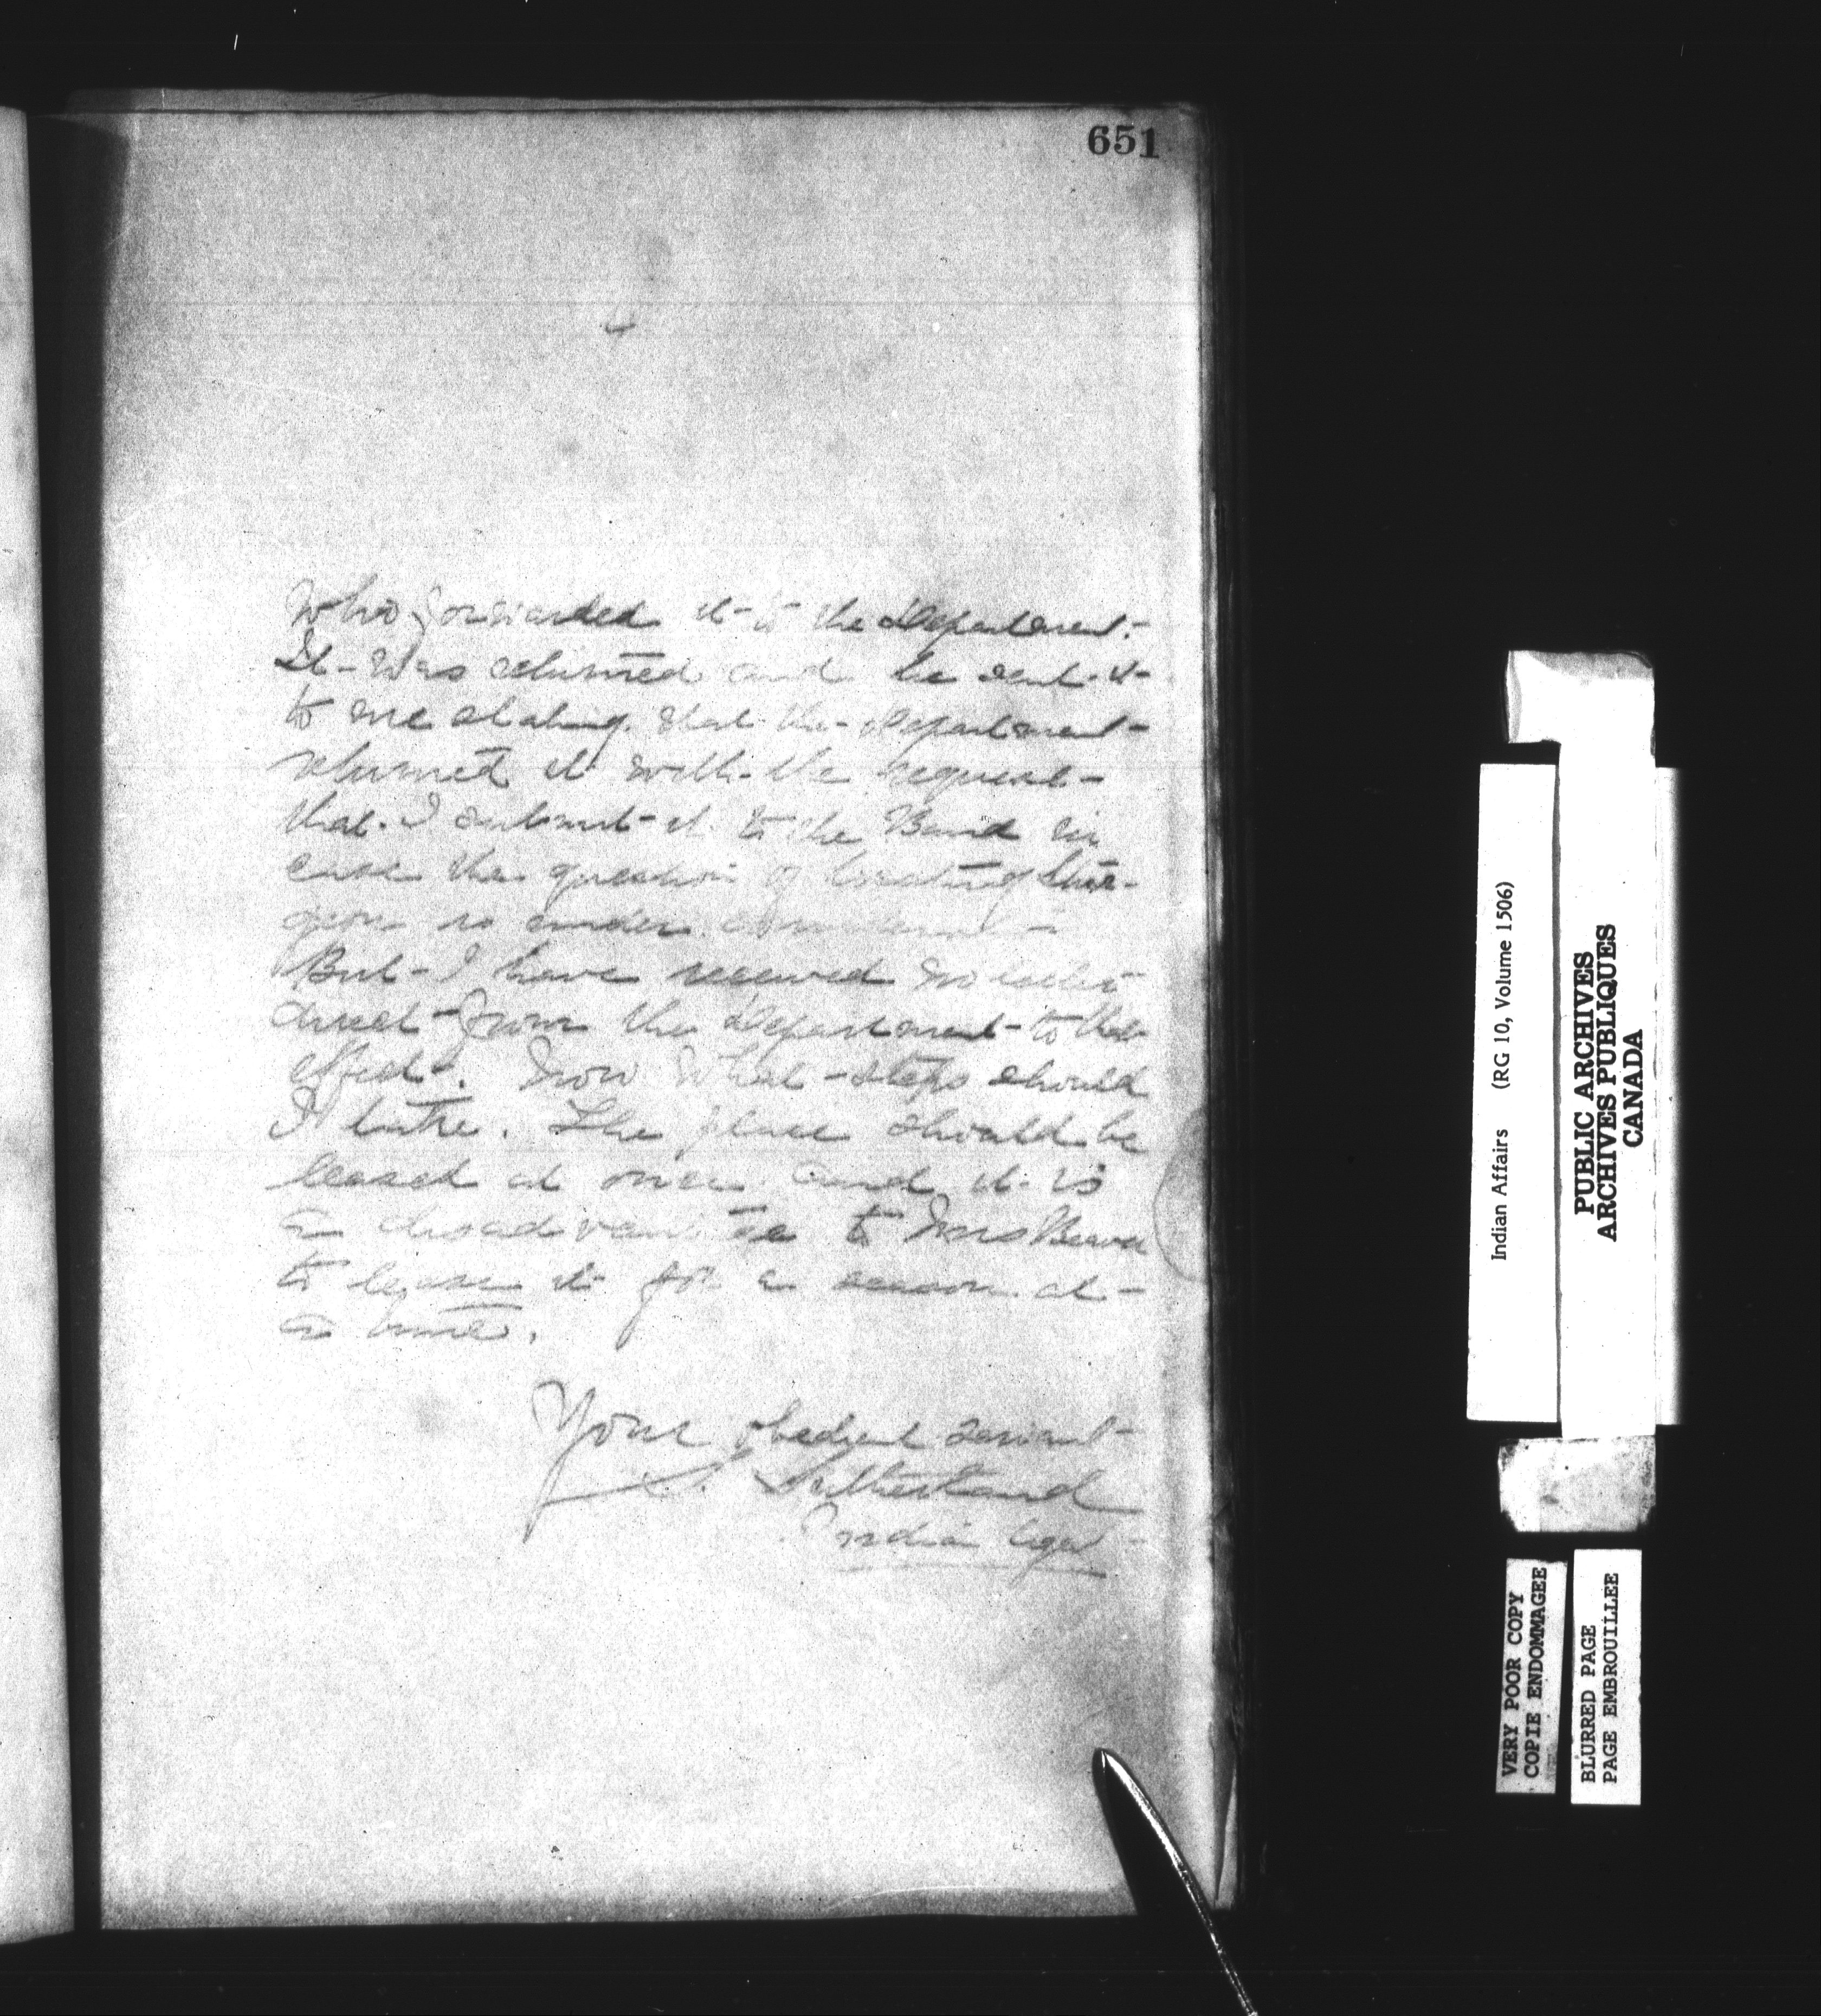 651
Who forwarded it to the Department.
It was returned and he sent it
to me stating that the Department
returned it with the request
that I submit it to the Band in
case the question of locating
is under
But I have received no letter
direct from the Department to that
effect. Now what steps should
I take. The place should be
leased at once and it is
a disadvantage to Mrs Beaver
to lease it for a season at
a time.
Your obedient servant
Sutherland
Indian Agent
Indian Affairs (RG 10, Volume 1506)
PUBLIC ARCHIVES
ARCHIVES PUBLIQUES
CANADA
VERY POOR COPY
COPIE ENDOMMAGEE
BLURRED PAGE
PAGE EMBROUILLEE